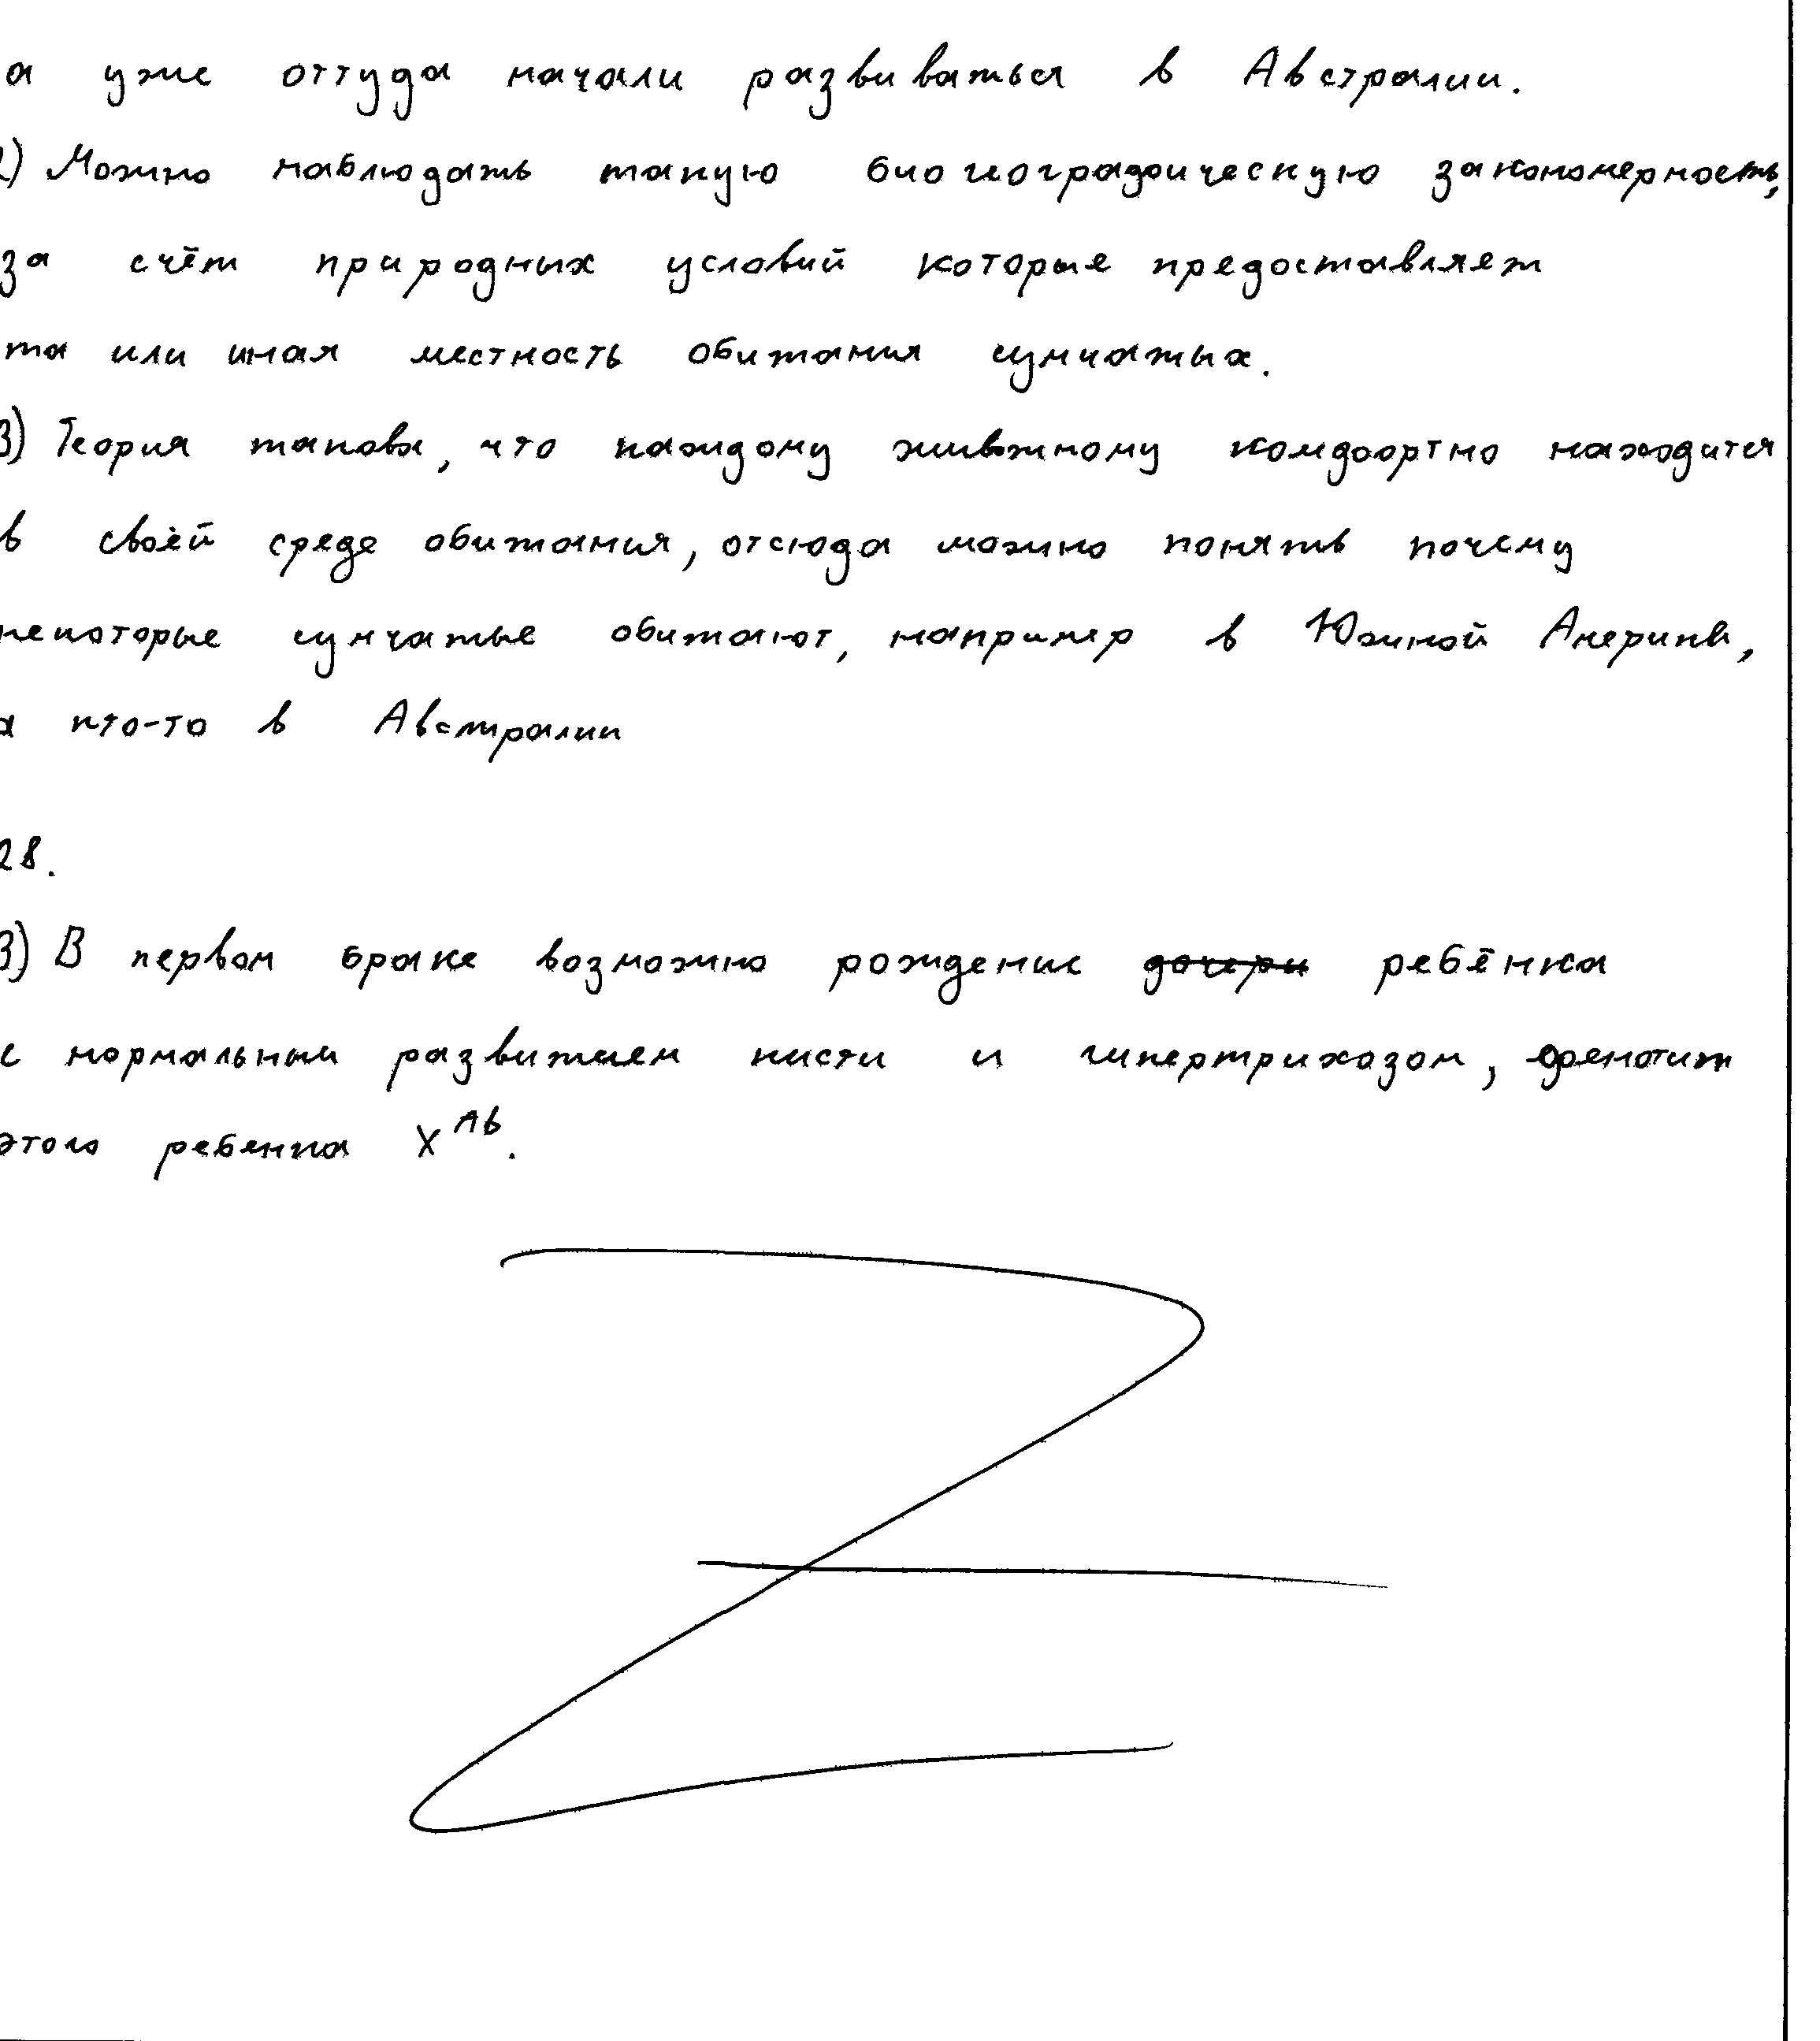 а уже оттуда начали развиваться в Австралии.
2) Можно наблюдать такую биогеографическую закономерность,
за счёт природных условий которые предоставляет
та или иная местность обитания сумчатых.
3) Теория такова, что каждому животному комфортно находится
в своей среде обитания, отсюда можно понять почему
некоторые сумчатые обитают, например в Южной Америке,
а кто-то в Австралии
28.
3) В первом браке возможно рождение дочери ребёнка
с нормальным развитием кисти и гипертрихозом, фенотип
этого ребенка X^Ab.